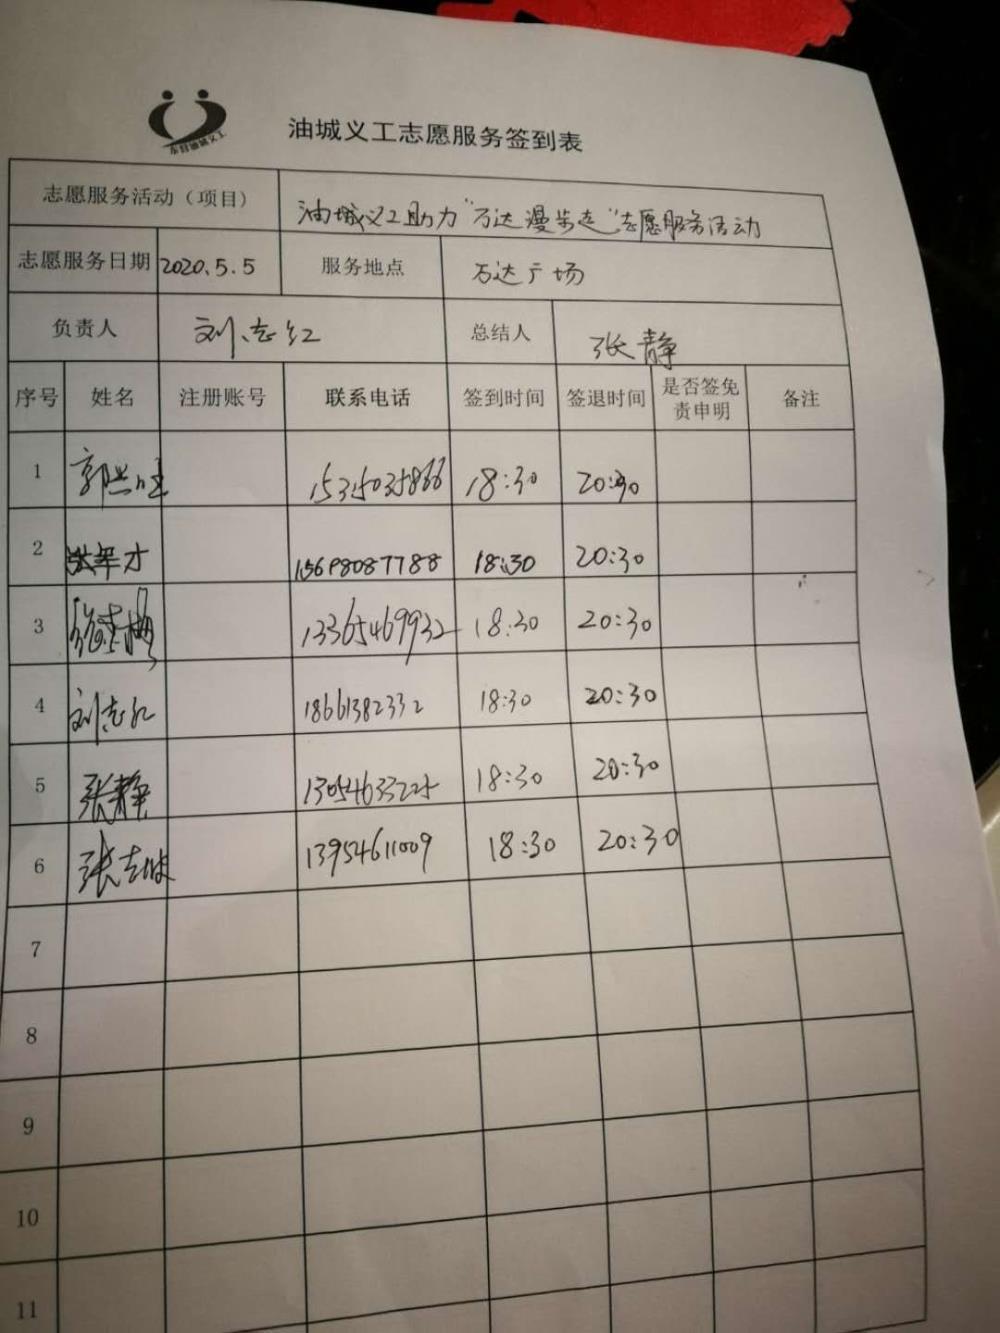 东营油城义工
油城义工志愿服务签到表
志愿服务活动（项目） 油城义工助力“万达漫步走”志愿服务活动
志愿服务日期 2020.5.5 服务地点 万达广场
负责人 刘志红 总结人 张静
序号 姓名 注册账号 联系电话 签到时间 签退时间 是否签免责申明 备注
1 郭兰旺 15315035866 18:30 20:30
2 15698087788 18:30 20:30
3 13365469932 18:30 20:30
4 刘志红 18661382332 18:30 20:30
5 张静 13054633225 18:30 20:30
6 13954611009 18:30 20:30
7
8
9
10
11